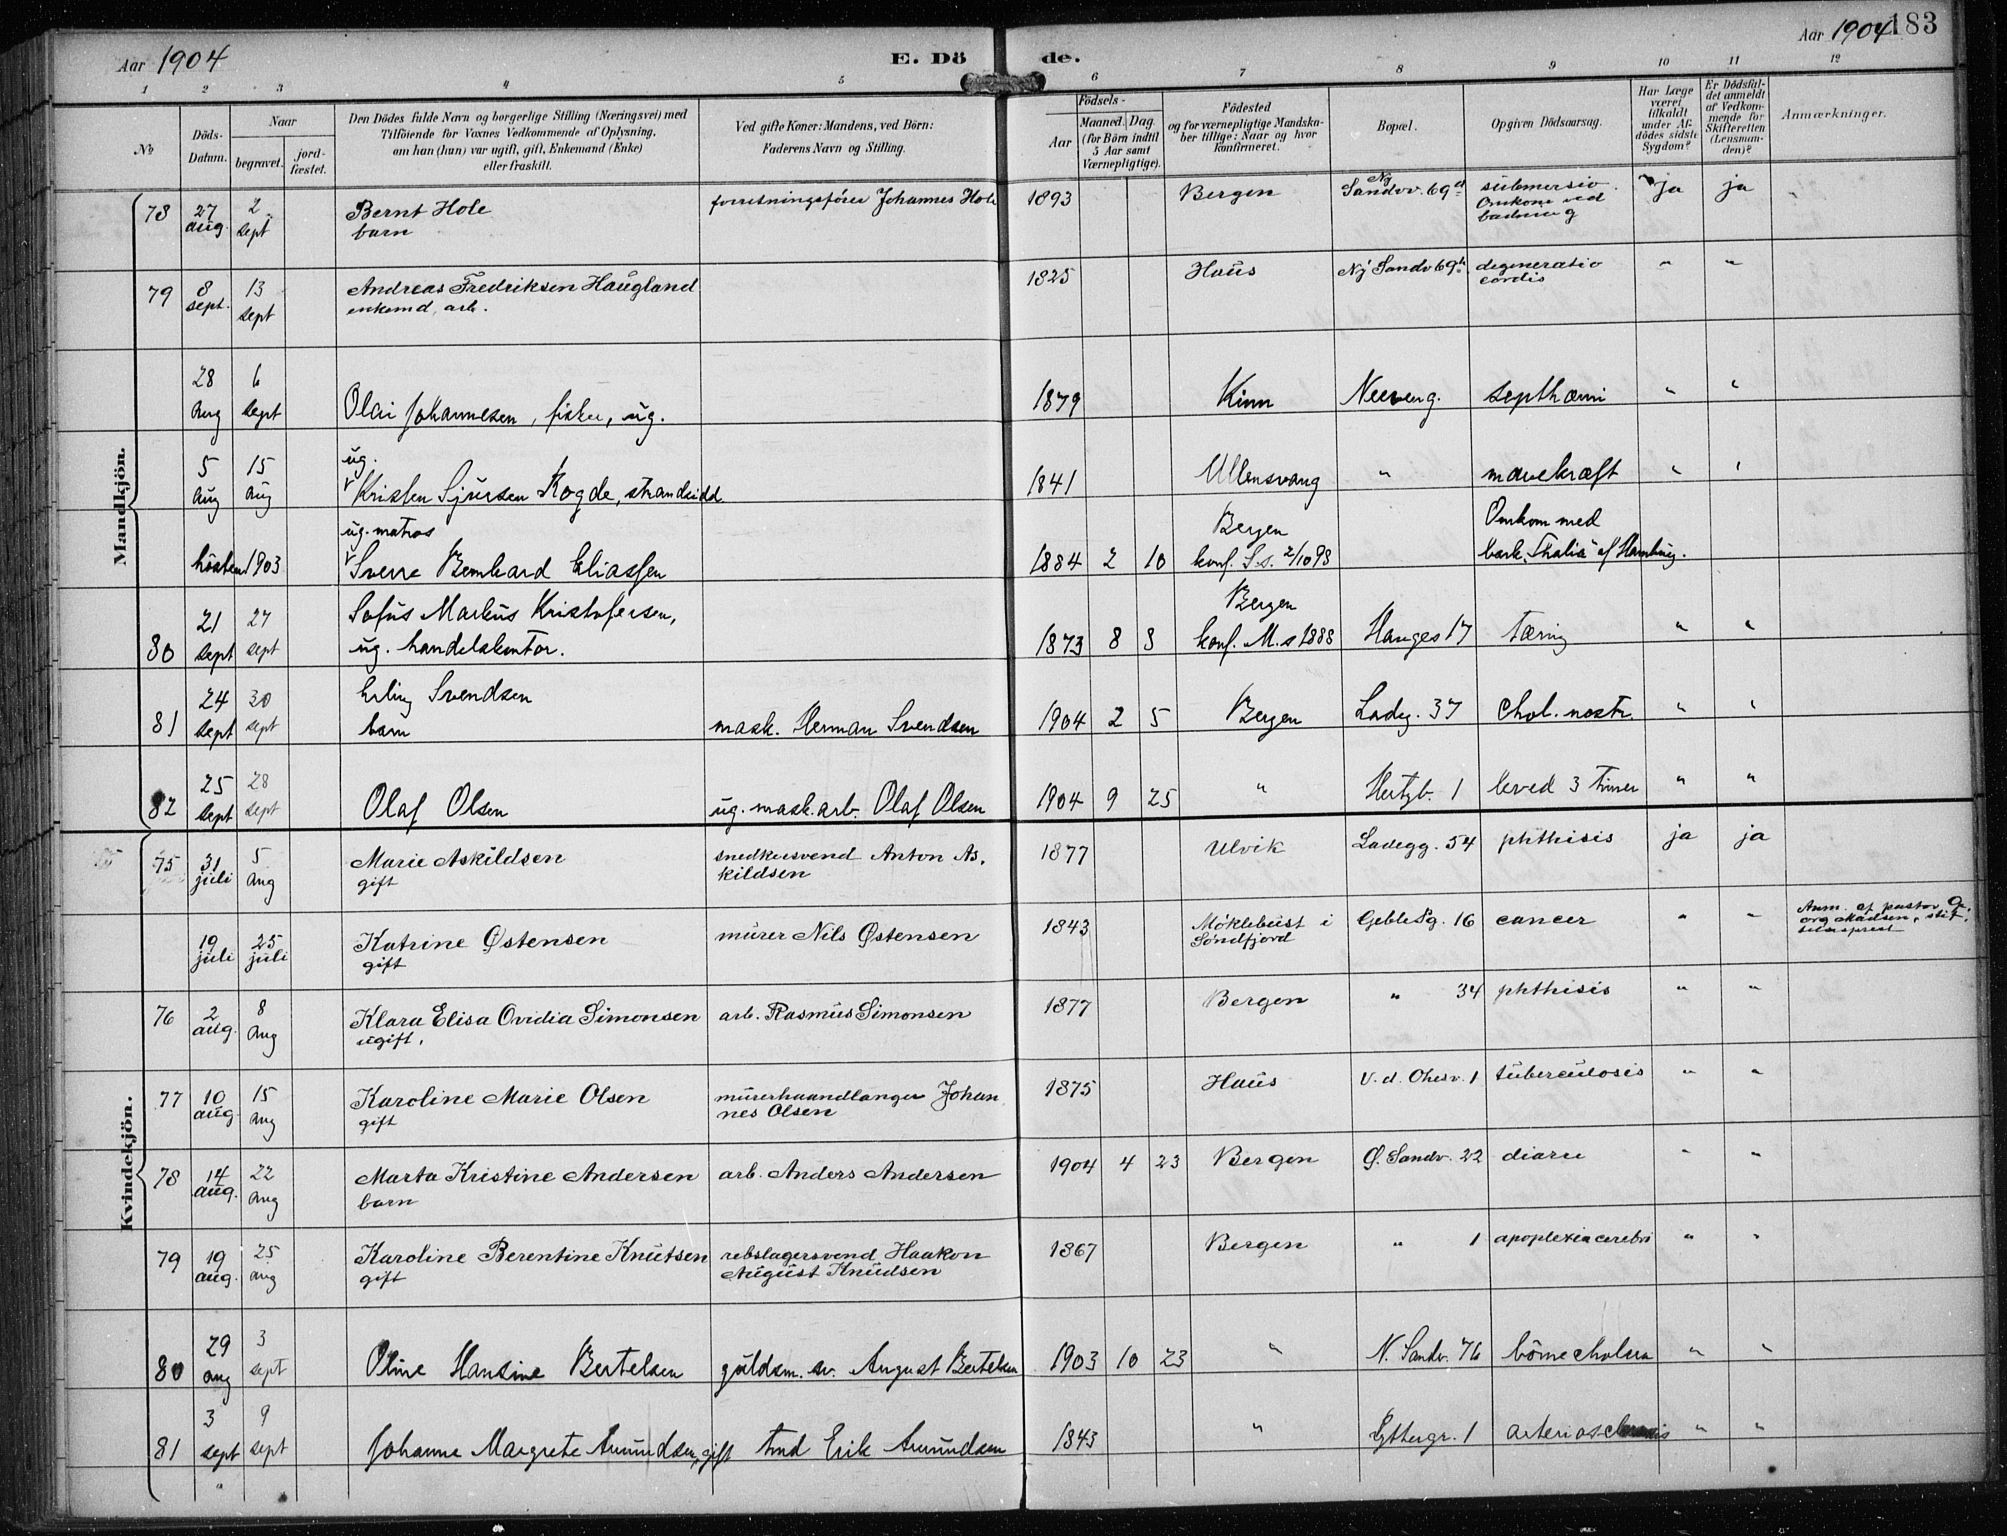 Aar 1904
E. Dö
de.
Aar 1904
183
1 2 3 4 5 6 7 8 9 10 11 12
No
Döds-
Datum.
Naar
begravet.
jord-
fæstet.
Den Dödes fulde Navn og borgerlige Stilling (Næringsvei) med
Tilföiende for Voxnes Vedkommende af Oplysning,
om han (hun) var ugift, gift, Enkemand (Enke)
eller fraskilt.
Ved gifte Koner: Mandens, ved Börn:
Faderens Navn og Stilling.
Födsels-
Aar
Maaned. Dag.
(for Börn indtil
5 Aar samt
Værnepligtige).
Födested
og for værnepligtige Mandska-
ber tillige: Naar og hvor
konfirmeret.
Bopæl.
Opgiven Dödsaarsag.
Har Læge
været
tilkaldt
under Af-
dödes sidste
Sygdom?
Er Dödsfal-
det anmeldt
af Vedkom-
mende for
Skifteretten
(Lensman-
den)?
Anmærkninger.
Mandkjön.
78 27 aug. 2 sept Bernt Hole barn forretningsfører Johannes Hole 1893 Bergen Ny Sandv. 69 submersio. Omkom ved badning ja ja
79 8 sept. 13 sept Andreas Fredriksen Haugland enkemd, arb. 1825 Haus Ny Sandv 69 degeneratio cordis " "
28 Aug 6 sept Olai Johannesen, fisker, ug. 1879 Kinn Neeveng. septhæmi " "
5 Aug 15 Aug ug. Kristen Sjursen Kogde, strandsidd 1841 Ullensvang " mavekræft " "
høsten 1903 ug. matros Sverre Bernhard Eliassen 1884 2 10 Bergen konf. S.s. 2/10 98 Omkom med bark "Thalia" af Hamburg.
80 21 sept 27 sept Sofus Markus Kristofersen, ug. handelskontor. 1873 8 8 Bergen konf. M.s 1888 Hauges 17 Tæring " "
81 24 sept 30 sept Erling Svendsen barn mask. Herman Svendsen 1904 2 5 Bergen Ladeg. 37 Chol. nostr. " "
82 25 sept 28 sept Olaf Olsen ug. mask. arb. Olaf Olsen 1904 9 25 " Hertzb. 1 leved 3 Timer " "
Kvindekjön.
75 31 juli 5 Aug Marie Askildsen gift snedkersvend Anton As- kildsen 1877 Ulvik Ladegg. 54 phthisis ja ja
19 juli 25 juli Katrine Østensen gift murer Nils Østensen 1843 Møklebust i Søndfjord Geble Pg. 16 cancer " " Anm. af pastor Ge- org Madsen, stif- telsesprest
76 2 aug. 8 Aug Klara Elisa Ovidia Simonsen ugift, arb. Rasmus Simonsen 1877 Bergen " 34 phthisis " "
77 10 aug. 15 Aug Karoline Marie Olsen gift murerhaandlanger Johan- nes Olsen 1875 Haus V. d. Ohesv. 1 tuberculosis " "
78 14 aug. 22 Aug Marta Kristine Andersen barn arb. Anders Andersen 1904 4 23 Bergen Ø. Sandv. 22 diaré " "
79 19 aug. 25 Aug Karoline Berentine Knutsen gift rebslagersvend Haakon August Knudsen 1867 Bergen " 1 apoplexia cerebri " "
80 29 Aug 3 sept Oline Hansine Bertelsen guldsm. sv. August Bertelsen 1903 10 23 " N. Sandv. 76 børnecholera " "
81 3 sept 9 sept Johanne Margrete Amundsen, gift Tmd Erik Amundsen 1843 " Lyttergr. 1 arterios " "